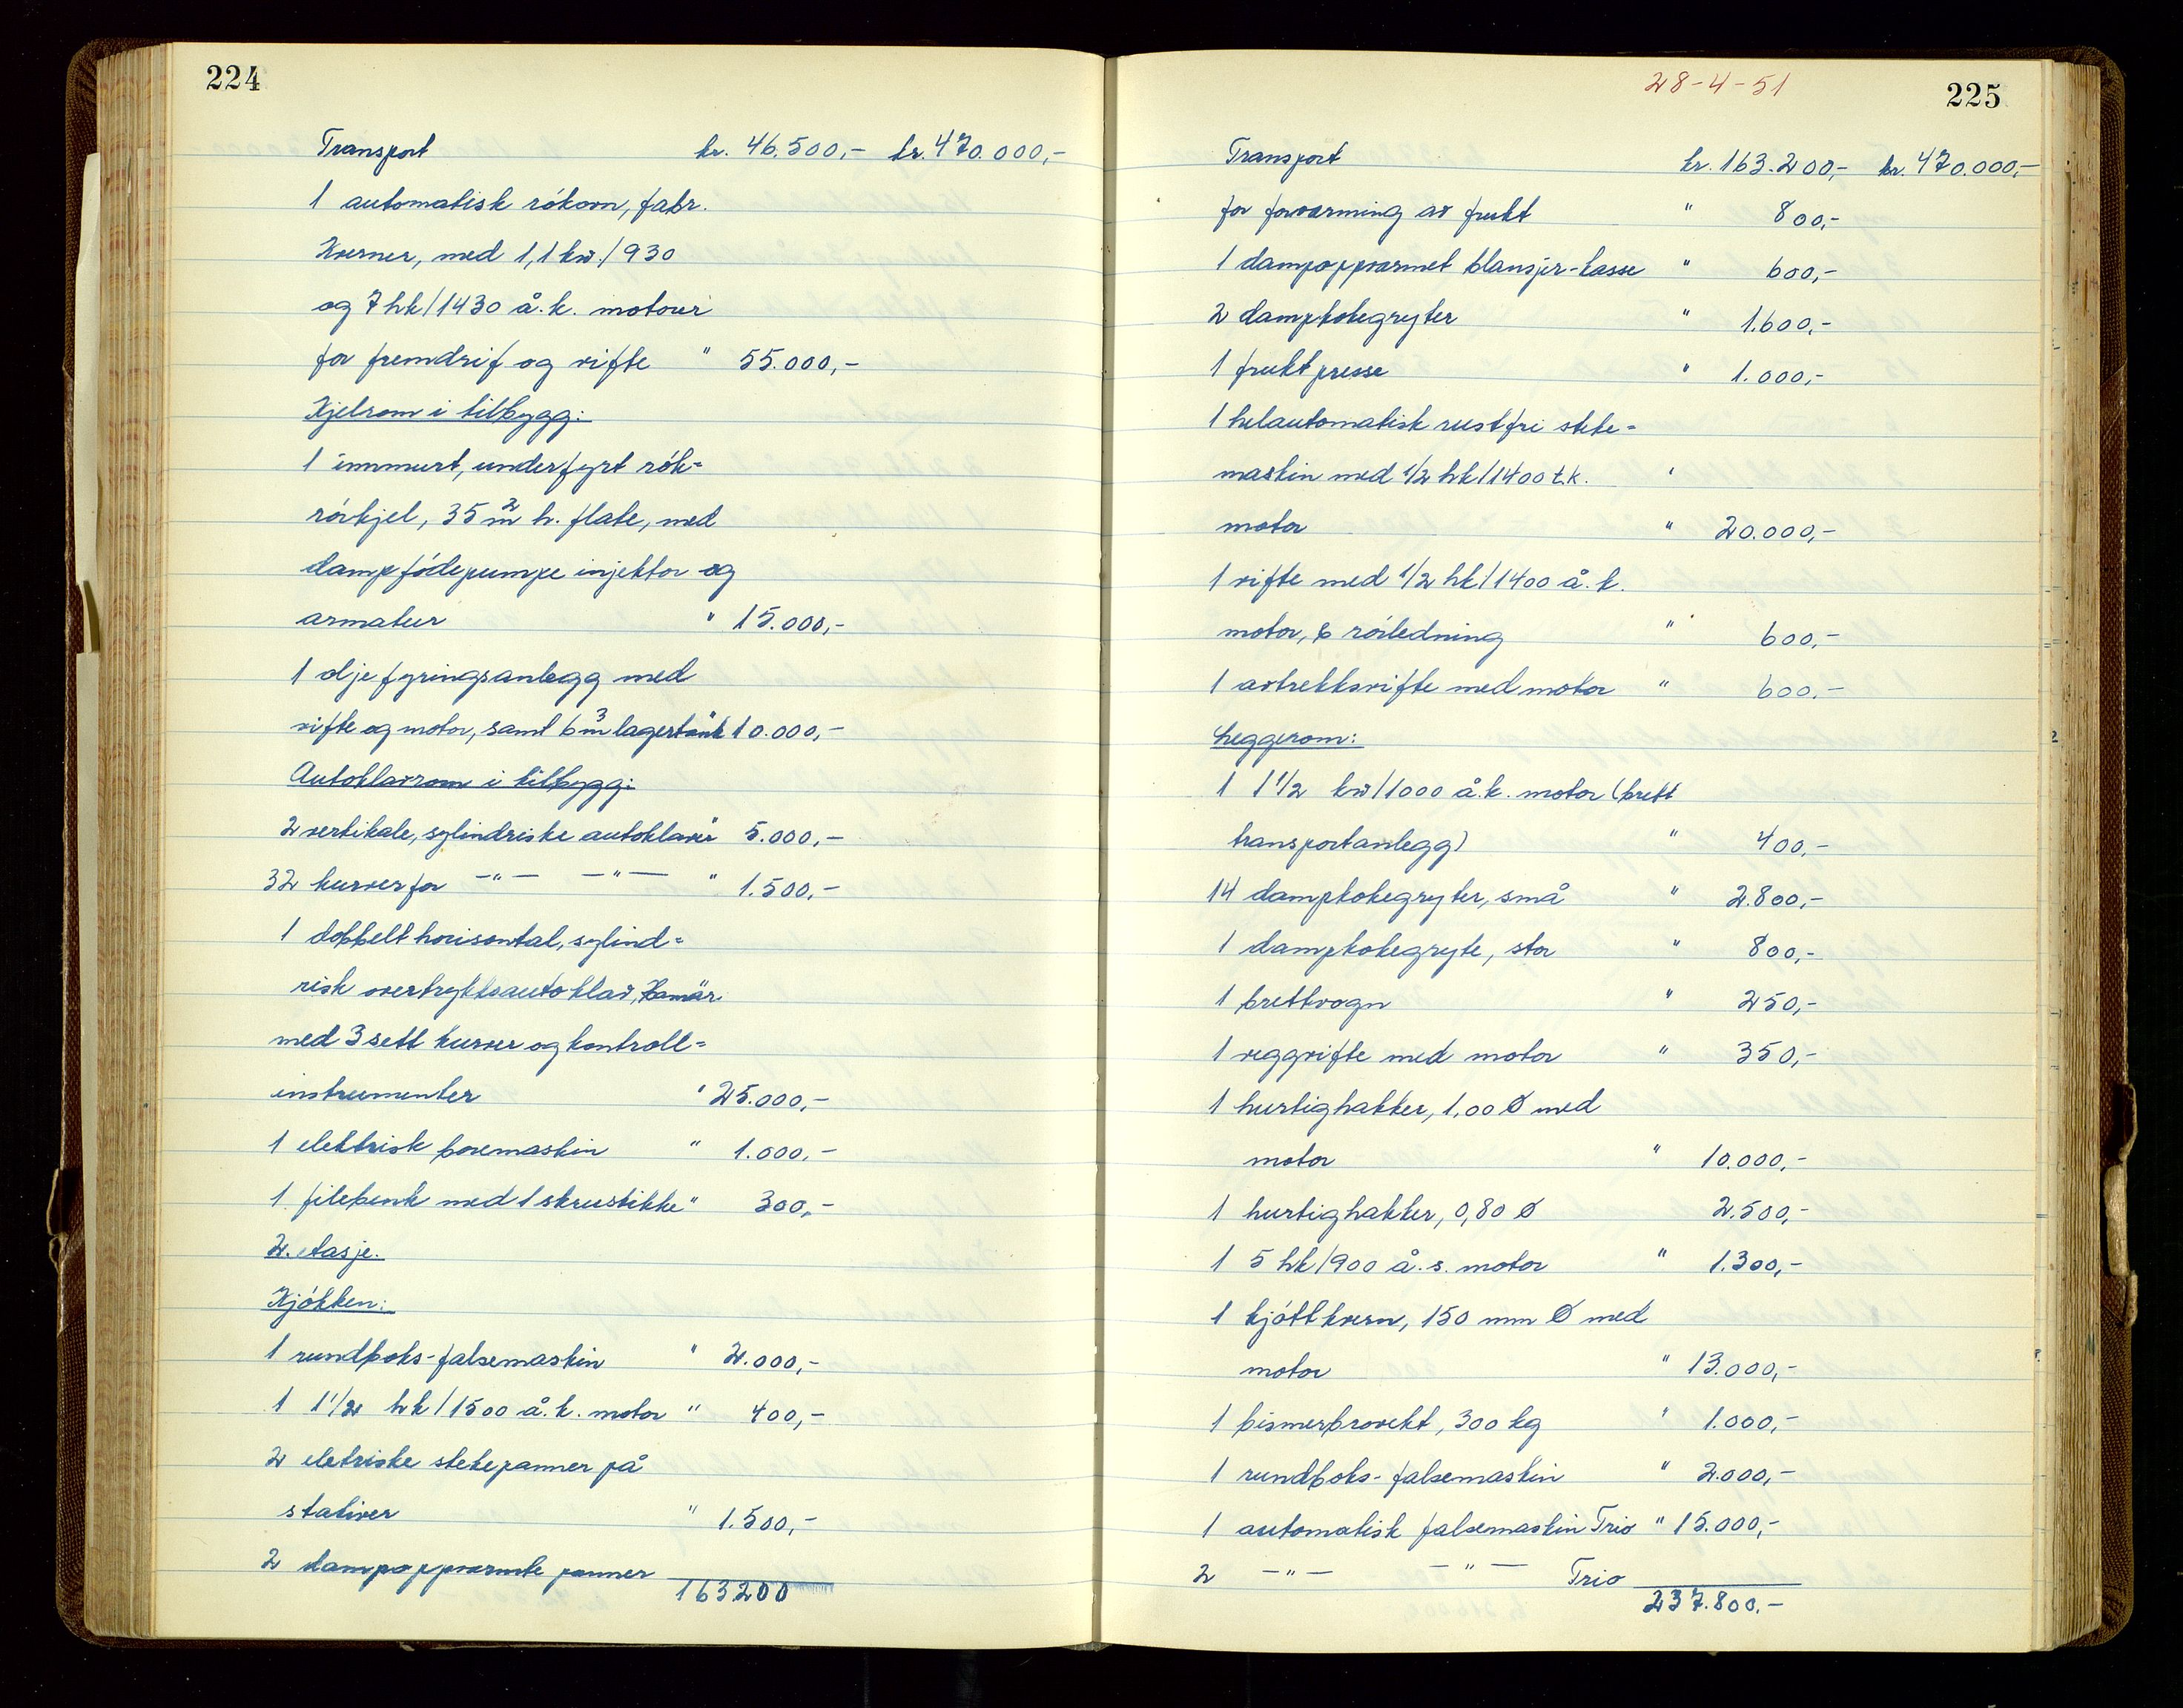 224
Transport kr. 46.500,- kr. 470.000,-
1 automatisk rókovn, fabr.
Kverner, med 1,1 kw./930
og 7 hk/1430 å.k. motorer
for fremdrif og vifte " 55.000,-
Kjelrom i tilbygg:
1 innmurt, underfyrt rók=
rórkjel, 35 m² h. flate, med
dampfódepumpe injektor og
armatur " 15.000,-
1 oljefyringsanlegg med
vifte og motor, samt 6 m³ lagertank " 10.000,-
Autoklavrom i tilbygg:
2 vertikale, sylindriske autoklaver " 5.000,-
32 kurver for -"- -"- " 1.500,-
1 dobbelt horisontal, sylind=
risk overtrykksautoklav,
med 3 sett kurver og kontroll=
instrumenter " 25.000,-
1 elektrisk boremaskin " 1.000,-
1 filebenk med 1 skrustikke " 300,-
2. etasje.
Kjókken:
1 rundboks-falsemaskin " 2.000,-
1 1 1/2 hk/1500 å.k. motor " 400,-
2 eletriske stekepanner på
stativer " 1.500,-
2 dampoppvarmte panner
163200
28-4-51
225
Transport kr. 163.200,- kr. 470.000,-
for forvarming av frukt " 800,-
1 dampoppvarmet blansjer-kasse " 600,-
2 dampkokegryter " 1.600,-
1 fruktpresse " 1.000,-
1 helautomatisk rustfri steke=
maskin med 1/2 hk/1400 t.k. "
motor " 20.000,-
1 vifte med 1/2 hk/1400 å.k.
motor, & rórledning " 600,-
1 avtrekksvifte med motor " 600,-
Leggerom:
1 1 1/2 kw/1000 å.k. motor (brett
transportanlegg) " 400,-
14 dampkokegryter, små " 2.800,-
1 dampkokegryte, stor " 800,-
1 brettvogn " 250,-
1 veggvifte med motor " 350,-
1 hurtighakker, 1,00 Ø med
motor " 10.000,-
1 hurtighakker, 0,80 Ø 2.500,-
1 5 hk/900 å.s. motor " 1.300,-
1 kjóttkvern, 150 mm Ø med
motor " 13.000,-
1 bismerbrovekt, 300 kg " 1.000,-
1 rundboks-falsemaskin " 2.000,-
1 automatisk falsemaskin Trio " 15.000,-
2 -"- -"- Trio
237.800,-